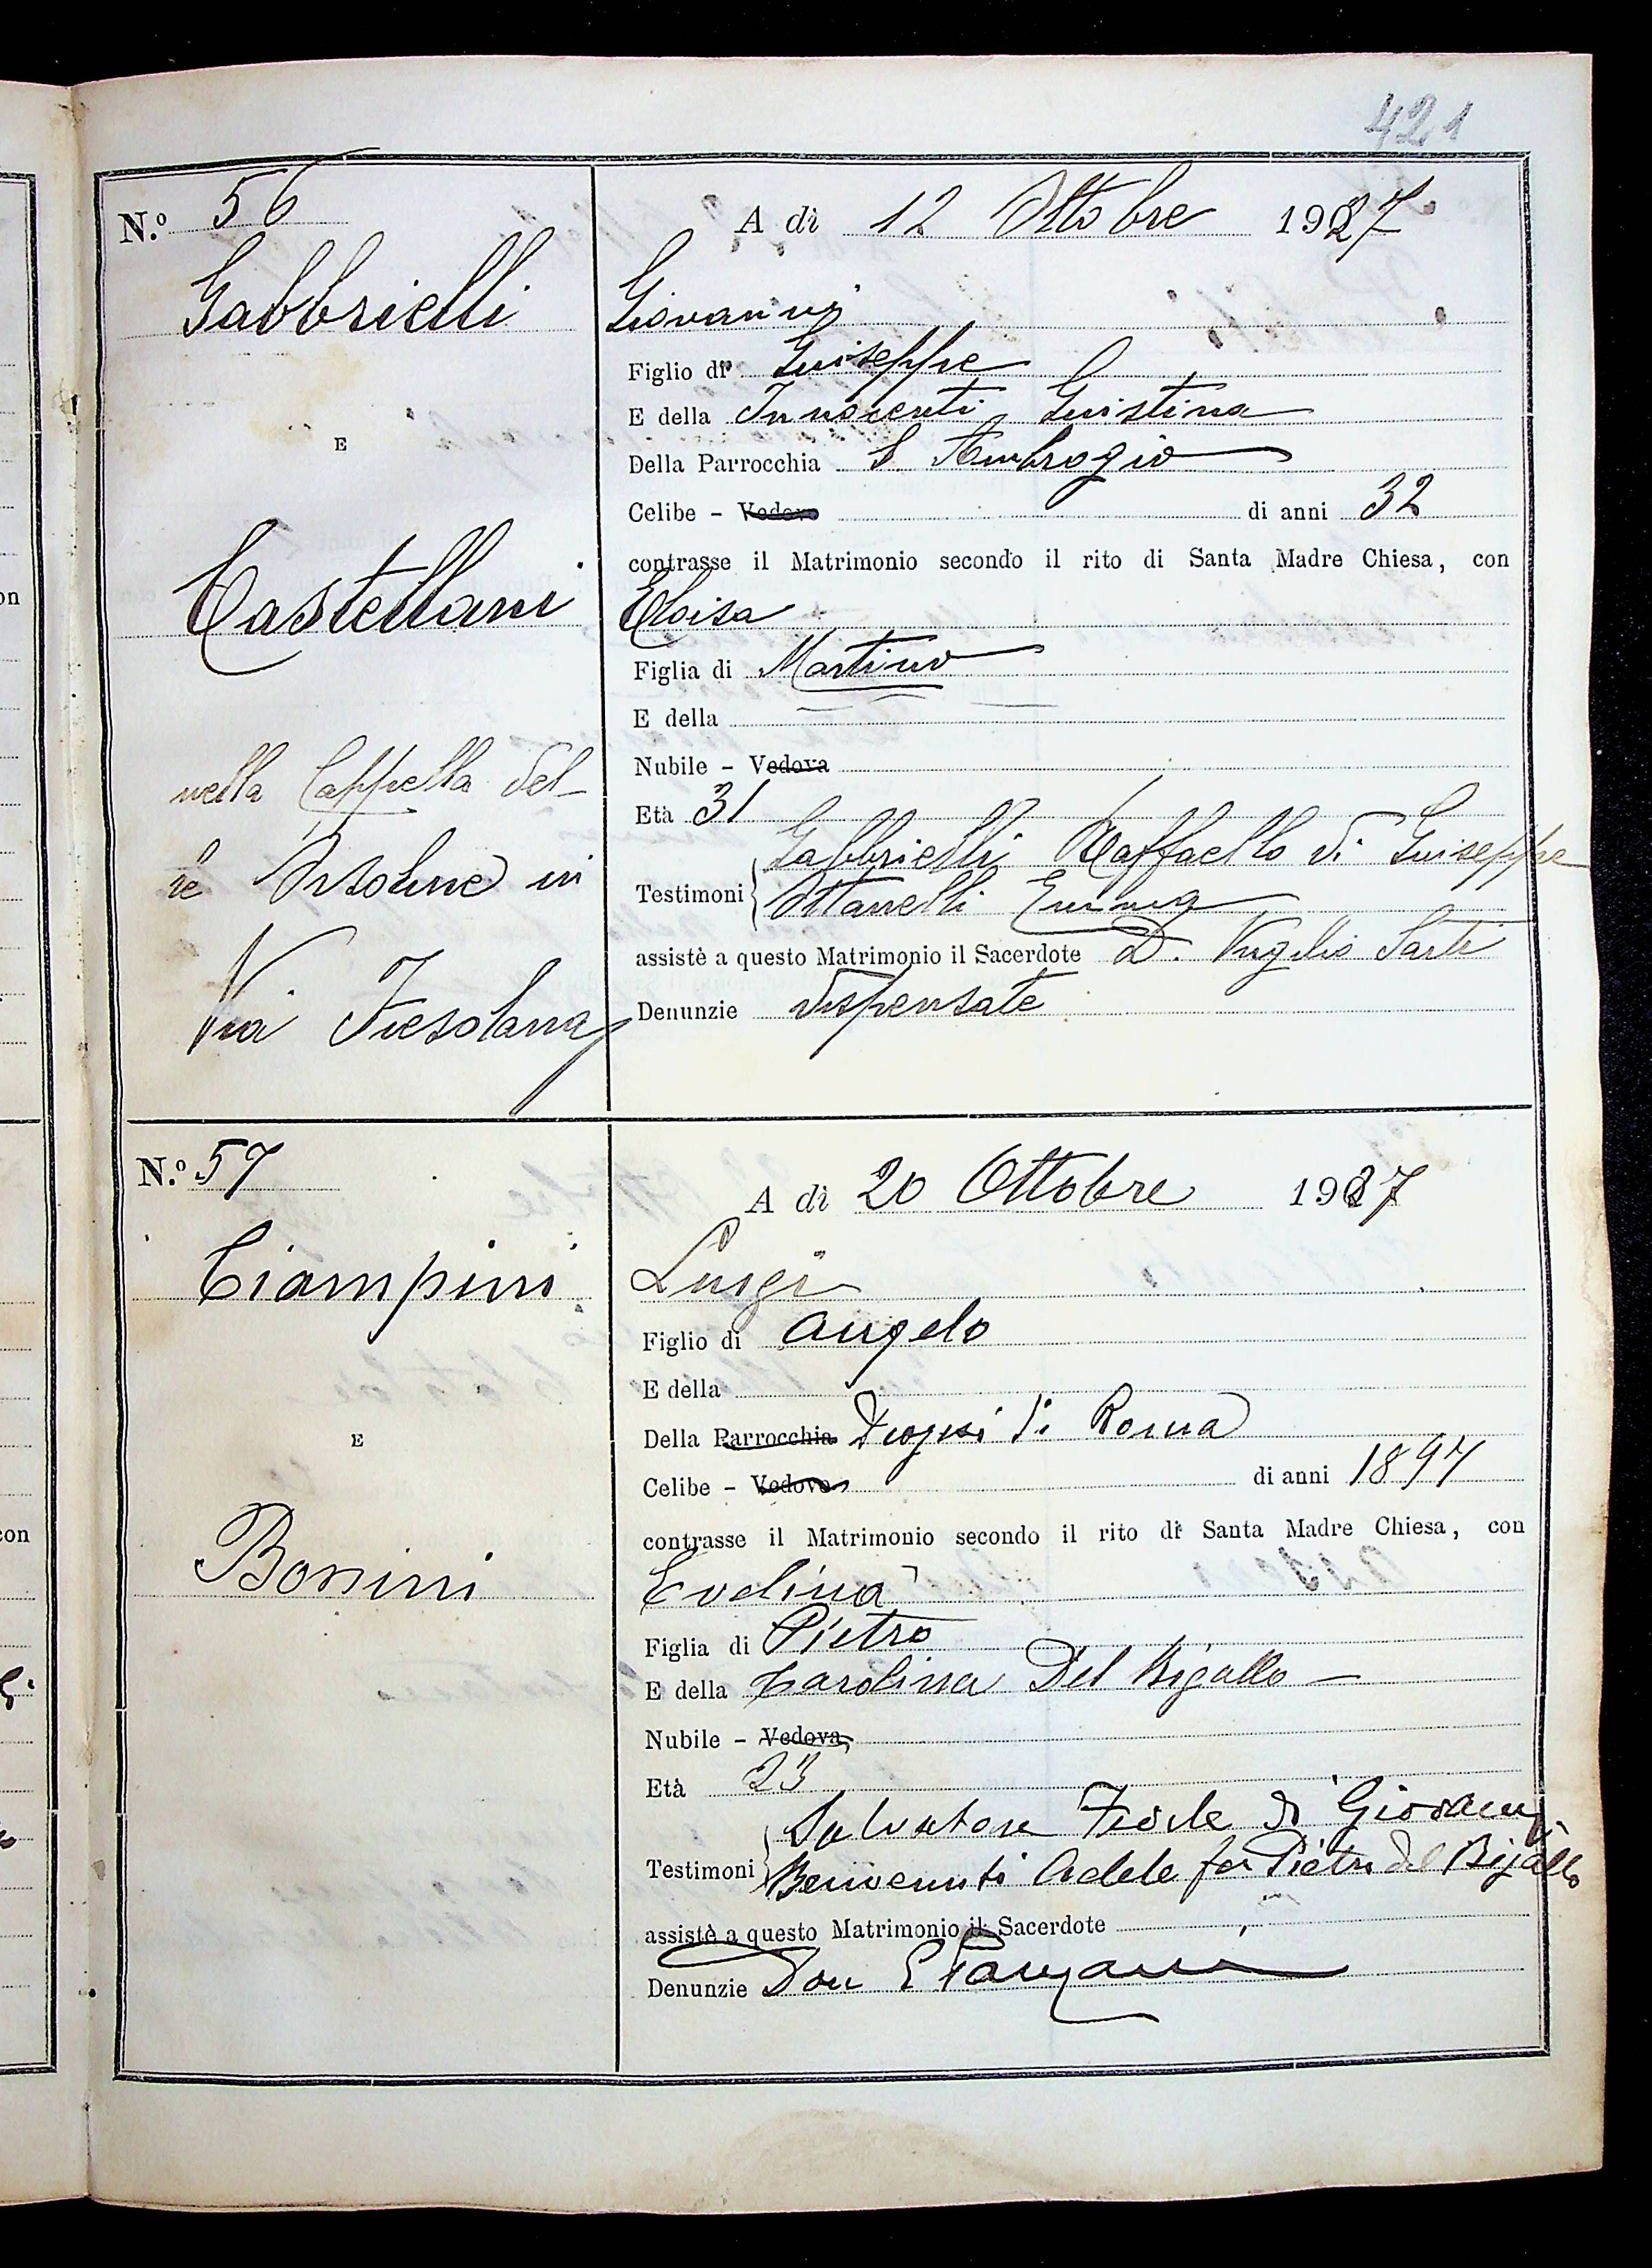 421
N.º 56
A dì 12 Ottobre 1927
Gabbrielli
Giovanni
Figlio di Giuseppe
E della Innocenti Giustina
E
Della Parrocchia S. Ambrogio
Celibe - Vedovo di anni 32
contrasse il Matrimonio secondo il rito di Santa Madre Chiesa, con
Castellani
Eloisa
Figlia di Martino
E della
Nubile - Vedova
Età 31
nella Cappella del-
le Orsoline in
Via Fiesolana
Testimoni Gabbrielli Raffaello di Giuseppe
Ottanelli Emma
assistè a questo Matrimonio il Sacerdote D. Virgilio Sarti
Denunzie dispensate
N.º 57
A dì 20 Ottobre 1927
Ciampini
Luigi
Figlio di Angelo
E della
E
Della Parrocchia Diogesi di Roma
Celibe - Vedovo di anni 1897
contrasse il Matrimonio secondo il rito di Santa Madre Chiesa, con
Bonini
Evelina
Figlia di Pietro
E della Carolina Del Bigallo
Nubile - Vedova
Età 23
Testimoni Salvatore di Giovanni
Benvenuti Adele fu Pietro del Bigallo
assistè a questo Matrimonio il Sacerdote
Denunzie Don
con
con